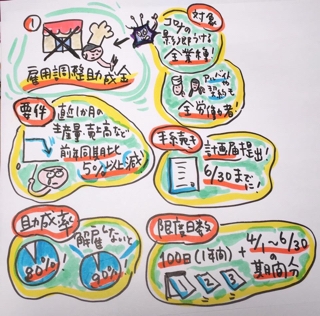 ①
雇用調整助成金
対象
コロナの
影響うける
全業種!
全労働者!
要件
直近1か月の
生産量、売上高など
前年同期比
5%以上減
手続き
計画届提出!
6/30までに!
助成率
80%!
解雇しないと
90%!
限度日数
100日(1年間)+4/1~6/30
の期間分
1 2 3